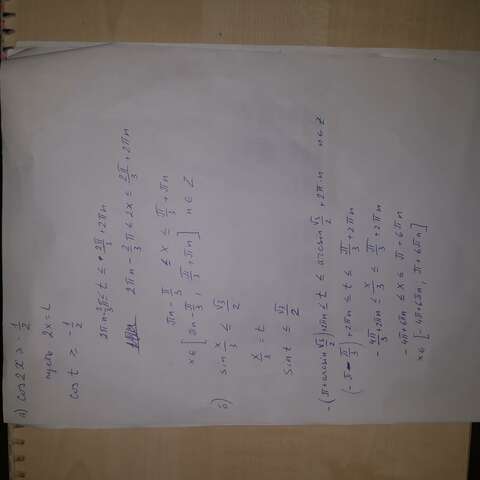 а) cos 2x ≥ -1/2
пусть 2x = t
cos t ≥ -1/2
2πn - 2π/3 ≤ t ≤ 2π/3 + 2πn
2πn - 2/3 π ≤ 2x ≤ 2π/3 + 2πn
πn - π/3 ≤ x ≤ π/3 + πn
x ∈ [πn - π/3; π/3 + πn] n ∈ Z
б) sin x/3 ≤ √3/2
x/3 = t
sin t ≤ √3/2
-(π + arcsin √3/2) + 2πn ≤ t ≤ arcsin √3/2 + 2π n n ∈ Z
(-π - π/3) + 2πn ≤ t ≤ π/3 + 2πn
-4π/3 + 2πn ≤ x/3 ≤ π/3 + 2πn
-4π + 6πn ≤ x ≤ π + 6πn
x ∈ [-4π + 6πn, π + 6πn]